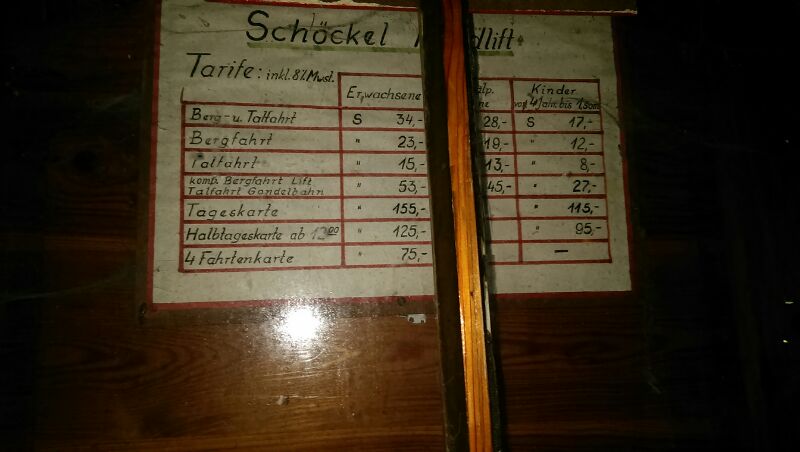 Schöckel dlift
Tarife: inkl. 8% Mwst.
Erwachsene lp. Kinder
ne von 4 Jahr. bis 1,50m
Berg-u. Talfahrt S 34,- 28,- S 17,-
Bergfahrt " 23,- 19,- " 12,-
Talfahrt " 15,- 13,- " 8,-
komb. Bergfahrt Lift
Talfahrt Gondelbahn " 53,- 45,- " 27,-
Tageskarte " 155,- " 115,-
Halbtageskarte ab 13⁰⁰ " 125,- " 95,-
4 Fahrtenkarte " 75,- —